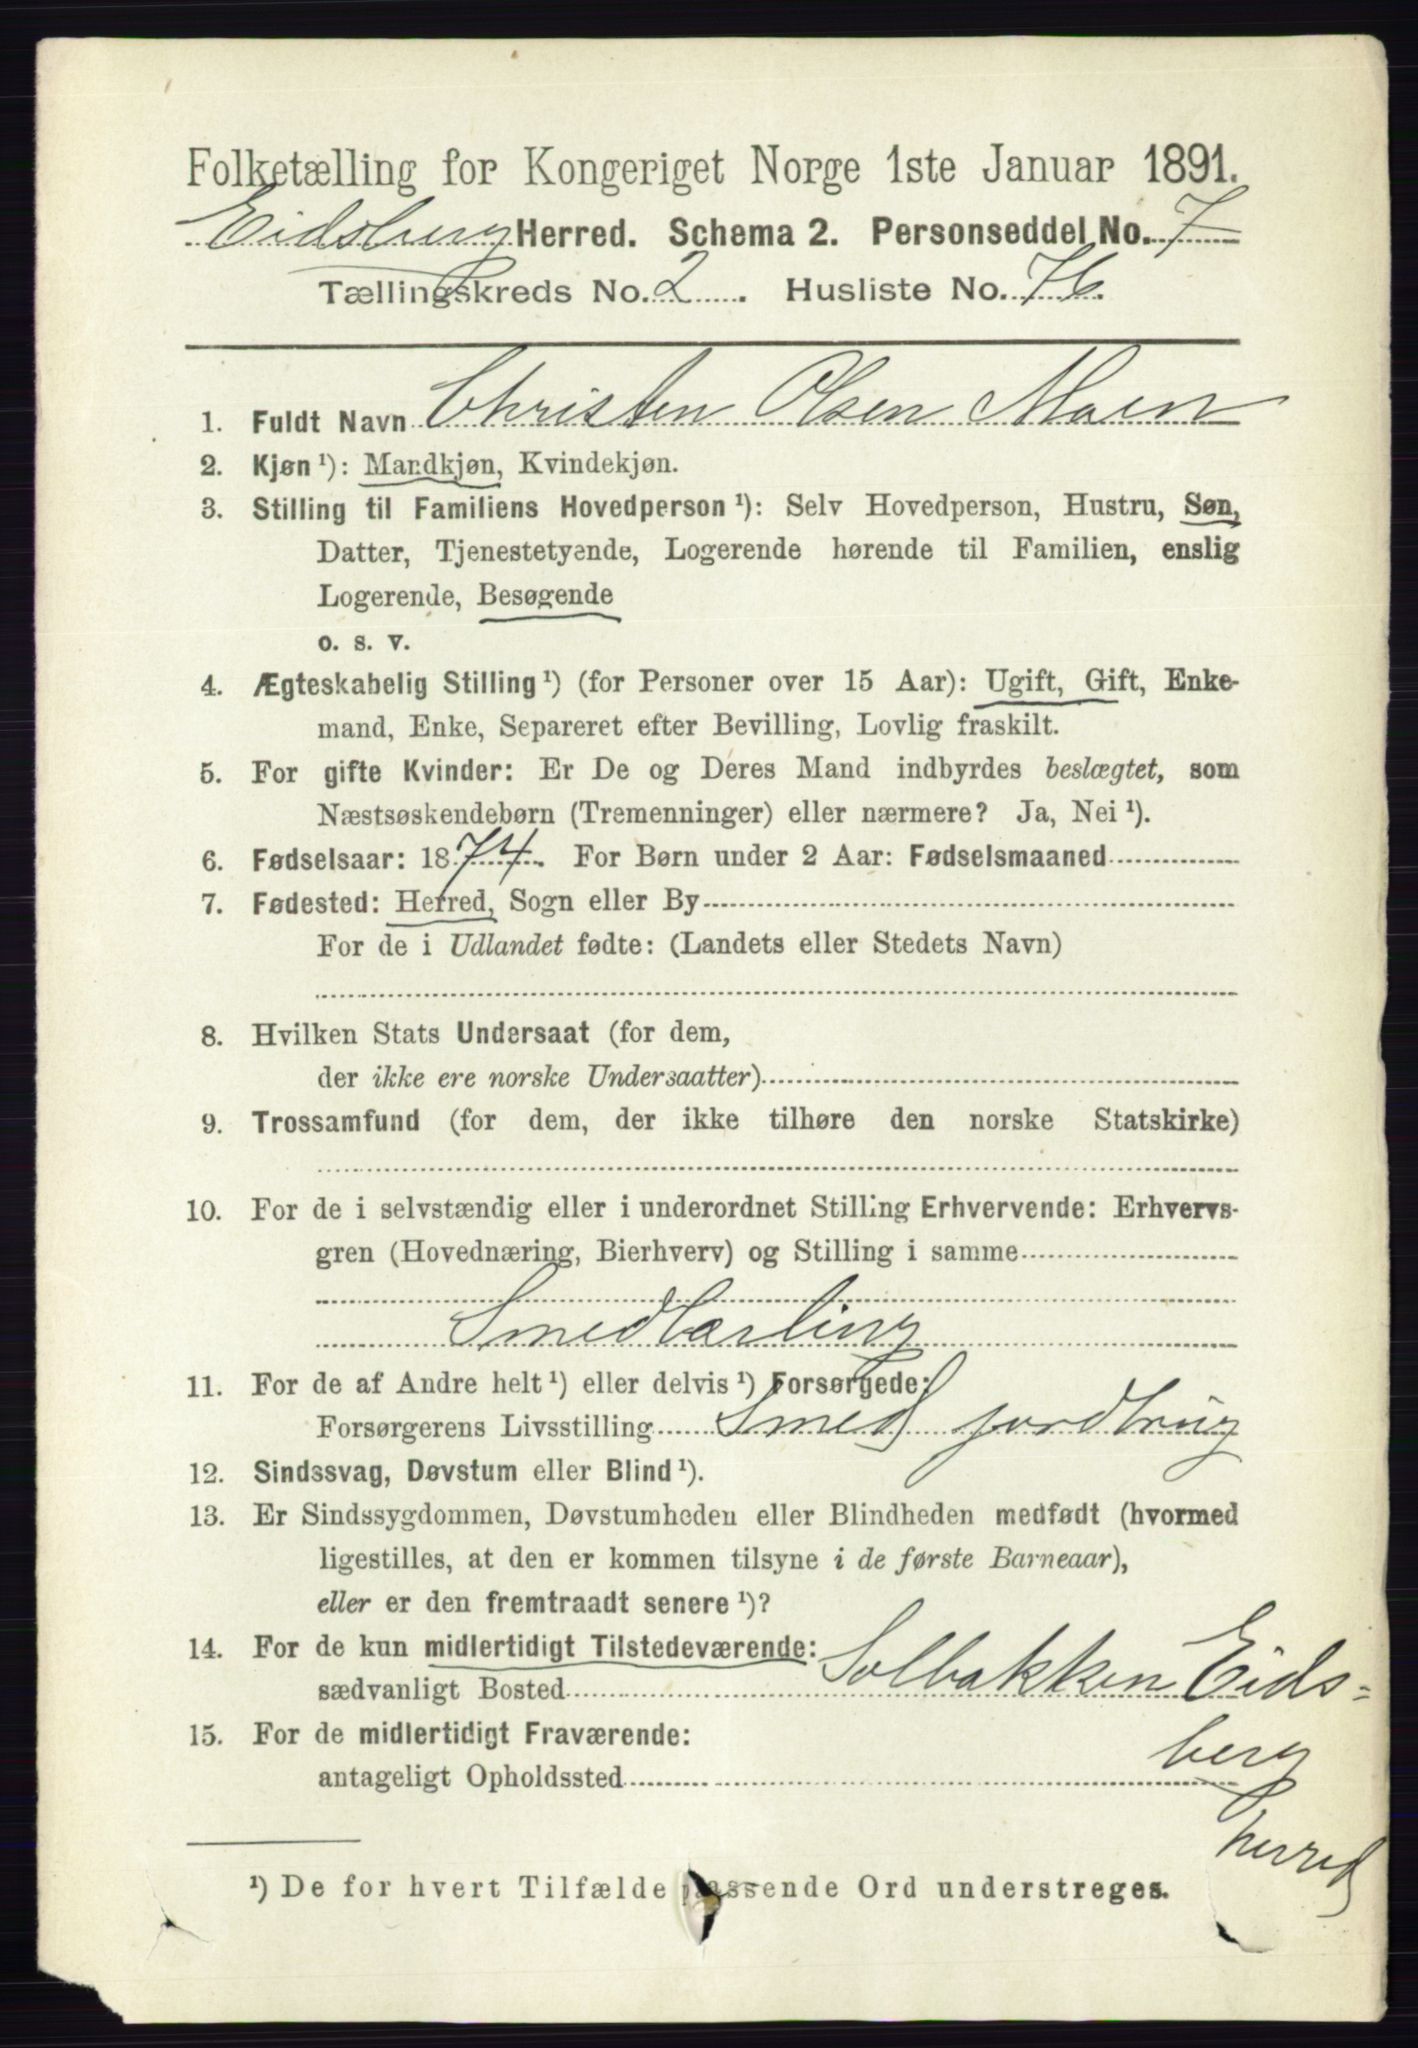 Folketælling for Kongeriget Norge 1ste Januar 1891.
Eidsberg Herred. Schema 2. Personseddel No. 7
Tællingskreds No. 2. Husliste No. 76.
1. Fuldt Navn Christen Olsen Moen
2. Kjøn ¹): Mandkjøn, Kvindekjøn.
3. Stilling til Familiens Hovedperson ¹): Selv Hovedperson, Hustru, Søn,
Datter, Tjenestetyende, Logerende hørende til Familien, enslig
Logerende, Besøgende
o. s. v.
4. Ægteskabelig Stilling ¹) (for Personer over 15 Aar): Ugift, Gift, Enke-
mand, Enke, Separeret efter Bevilling, Lovlig fraskilt.
5. For gifte Kvinder: Er De og Deres Mand indbyrdes beslægtet, som
Næstsøskendebørn (Tremenninger) eller nærmere? Ja, Nei ¹).
6. Fødselsaar: 1874. For Børn under 2 Aar: Fødselsmaaned
7. Fødested: Herred, Sogn eller By
For de i Udlandet fødte: (Landets eller Stedets Navn)
8. Hvilken Stats Undersaat (for dem,
der ikke ere norske Undersaatter)
9. Trossamfund (for dem, der ikke tilhøre den norske Statskirke)
10. For de i selvstændig eller i underordnet Stilling Erhvervende: Erhvervs-
gren (Hovednæring, Bierhverv) og Stilling i samme
Smedlærling
11. For de af Andre helt ¹) eller delvis ¹) Forsørgede:
Forsørgerens Livsstilling Smed jordbrug
12. Sindssvag, Døvstum eller Blind ¹).
13. Er Sindssygdommen, Døvstumheden eller Blindheden medfødt (hvormed
ligestilles, at den er kommen tilsyne i de første Barneaar),
eller er den fremtraadt senere ¹)?
14. For de kun midlertidigt Tilstedeværende:
sædvanligt Bosted Solbakken Eids=
15. For de midlertidigt Fraværende:
berg
antageligt Opholdssted
herred
¹) De for hvert Tilfælde passende Ord understreges.